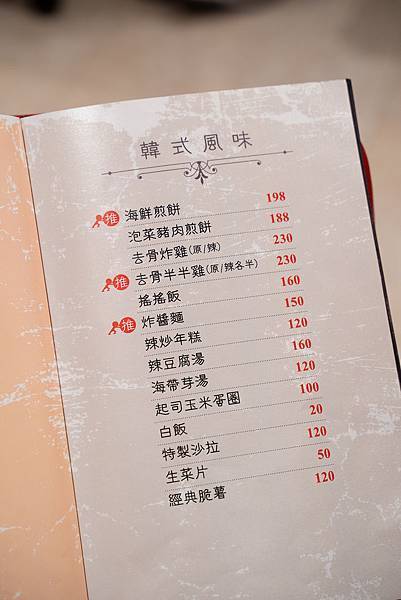 韓式風味
推 海鮮煎餅 198
泡菜豬肉煎餅 188
去骨炸雞(原/辣) 230
推 去骨半半雞(原/辣各半) 230
搖搖飯 160
推 炸醬麵 150
辣炒年糕 120
辣豆腐湯 160
海帶芽湯 120
起司玉米蛋圈 100
白飯 20
特製沙拉 120
生菜片 50
經典脆薯 120